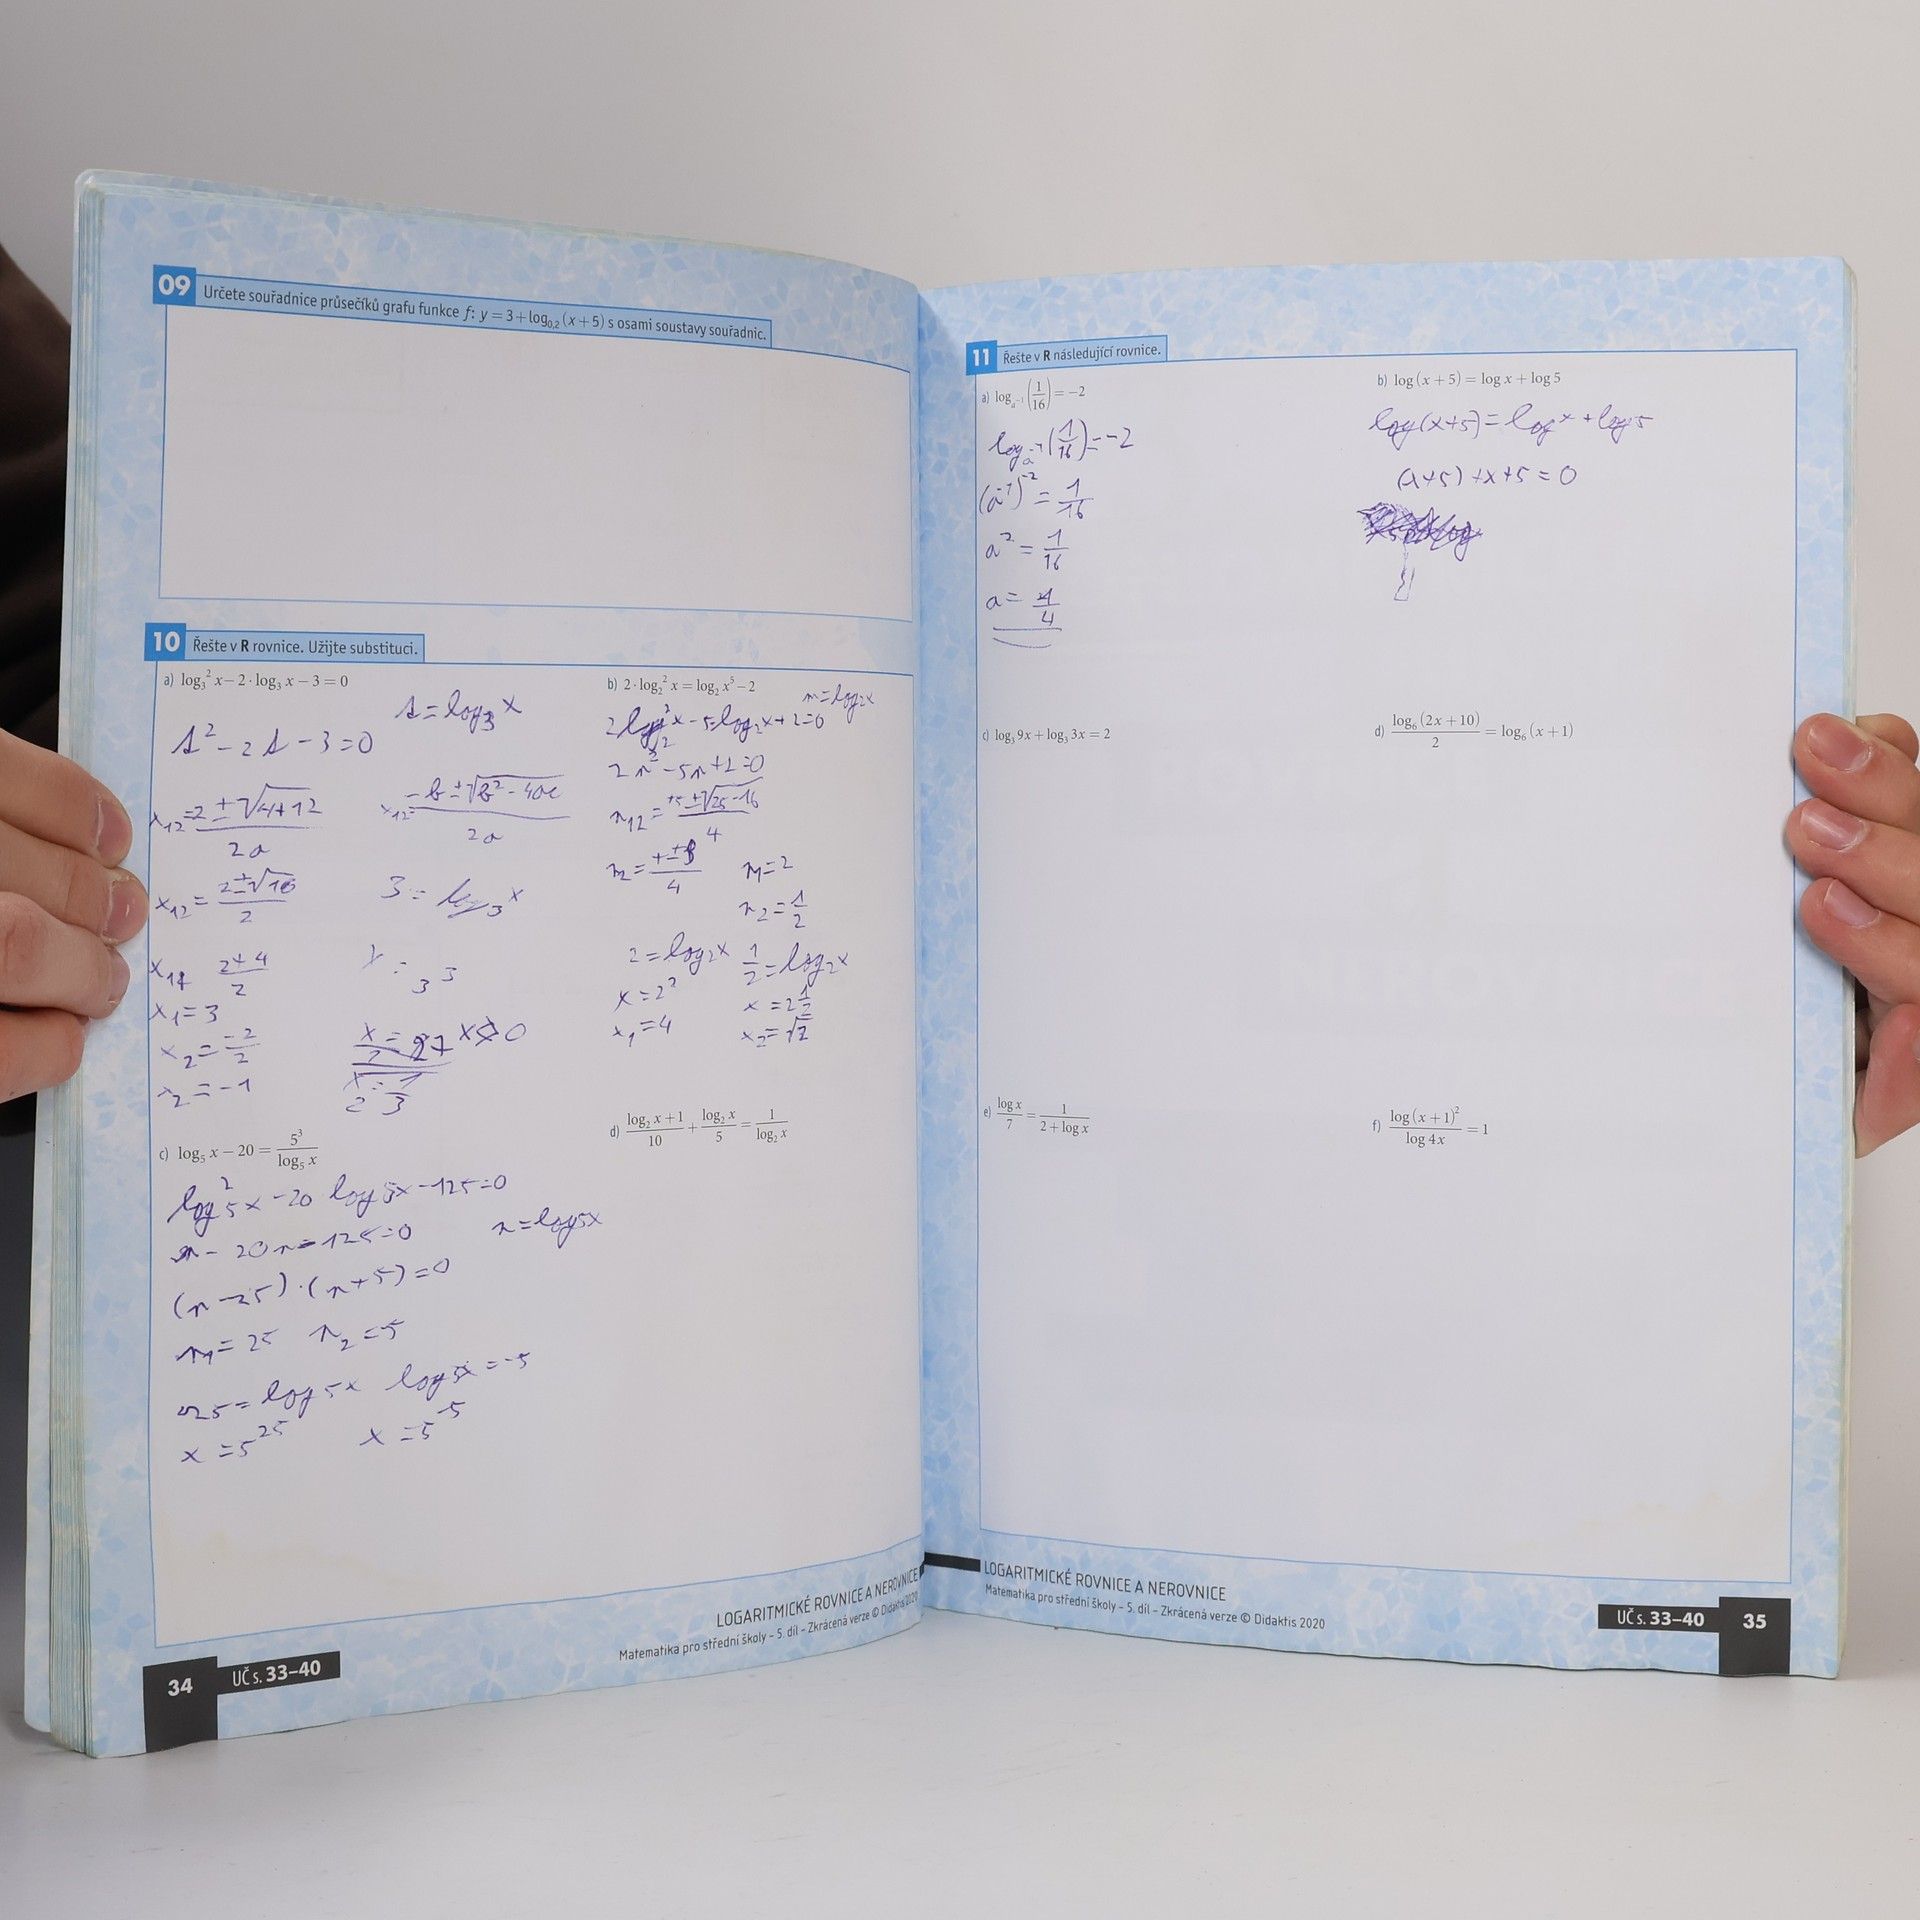 09 Určete souřadnice průsečíků grafu funkce f: y = 3 + log₀,₂ (x + 5) s osami soustavy souřadnic.
10 Řešte v R rovnice. Užijte substituci.
a) log₃² x − 2 · log₃ x − 3 = 0
s = log₃ x
s² − 2s − 3 = 0
x₁₂ = (2 ± √(4+12))/2a
x₁₂ = (−b ± √(b² − 4ac))/2a
x₁₂ = (2 ± √16)/2
3 = log₃ x
(2+4)/2
3³
x₁ = 3
x₂ = −2/2
x = 27 x > 0
x₂ = −1
b) 2 · log₂² x = log₂ x⁵ − 2
2 log₂² x − 5 log₂ x + 2 = 0
2n² − 5n + 2 = 0
n₁₂ = (+5 ± √(25−16))/4
n₁ = 2
n₂ = 1/2
2 = log₂ x 1/2 = log₂ x
x = 2² x = 2^(1/2)
x₁ = 4 x₂ = √2
c) log₅ x − 20 = 5³/log₅ x
log²5x − 20 log5x − 125 = 0
n = log5x
− 20n − 125 = 0
(n − 25) · (n + 5) = 0
n₁ = 25 n₂ = −5
25 = log 5x log 5x = −5
x = 5²⁵ x = 5⁻⁵
d) (log₂ x + 1)/10 + log₂ x/5 = 1/log₂ x
LOGARITMICKÉ ROVNICE A NEROVNICE
Matematika pro střední školy – 5. díl – Zkrácená verze © Didaktis 2020
34 UČ s. 33–40
11 Řešte v R následující rovnice.
a) log_{a⁻¹} (1/16) = −2
log_{a⁻¹} (1/16) = −2
(a⁻¹)⁻² = 1/16
a² = 1/16
a = 1/4
b) log (x + 5) = log x + log 5
log (x+5) = log x + log 5
(x+5) + x + 5 = 0
c) log₃ 9x + log₃ 3x = 2
d) log₆ (2x + 10)/2 = log₆ (x + 1)
e) log x/7 = 1/(2 + log x)
f) log (x + 1)²/log 4x = 1
LOGARITMICKÉ ROVNICE A NEROVNICE
Matematika pro střední školy – 5. díl – Zkrácená verze © Didaktis 2020
UČ s. 33–40 35